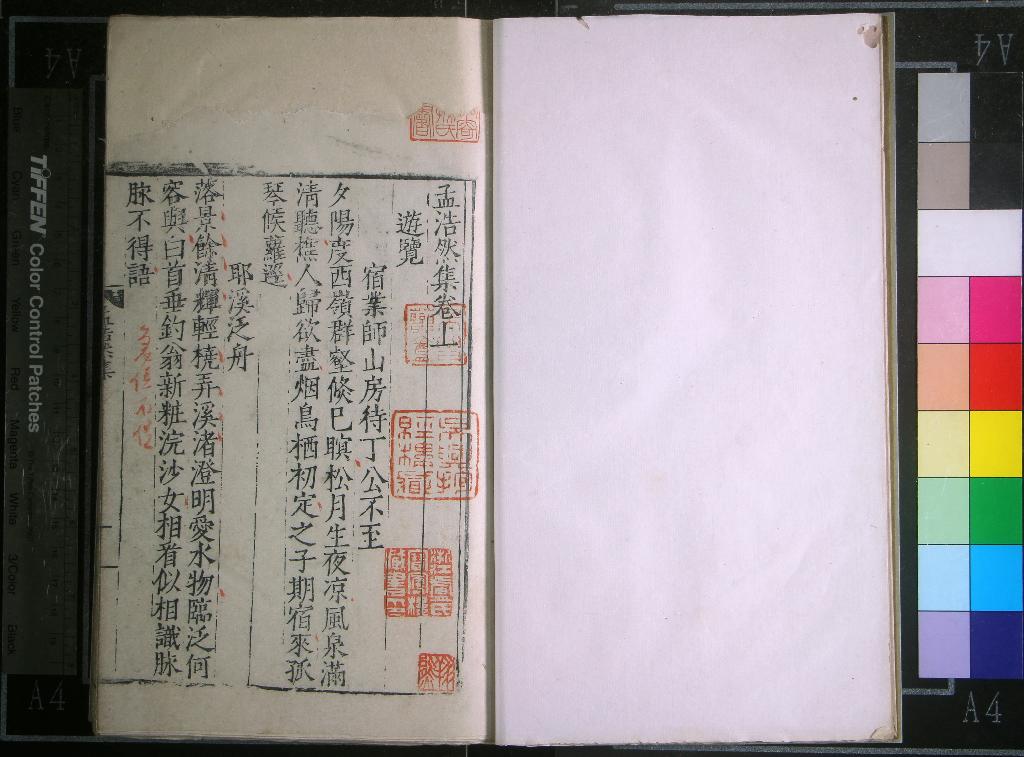 孟浩然集卷上
遊覽
宿業師山房待丁公不至
夕陽度西嶺群壑倐已暝松月生夜凉風泉滿
清聽樵人歸欲盡烟鳥栖初定之子期宿來孤
琴候蘿逕
耶溪泛舟
落景餘清輝輕橈弄溪渚澄明愛水物臨泛何
容與白首垂釣翁新粧浣沙女相看似相識脉
脉不得語
TIFFEN Color Control Patches
Blue
Cyan
Green
Yellow
Red
Magenta
White
3/Color
Black
A4
A4
A4
A4